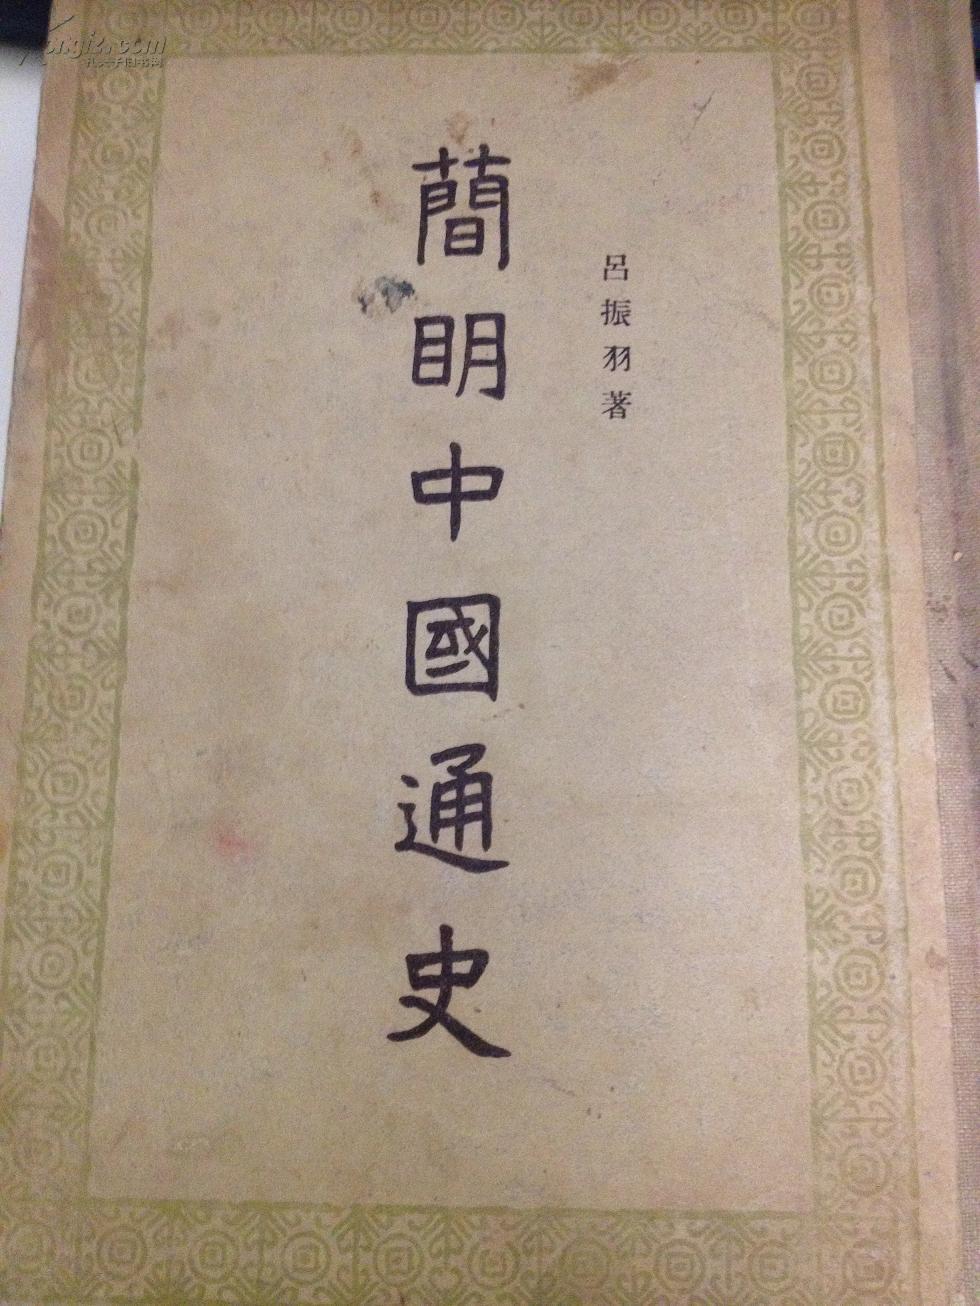 呂振羽著
簡明中國通史
kongfz.com
孔夫子旧书网